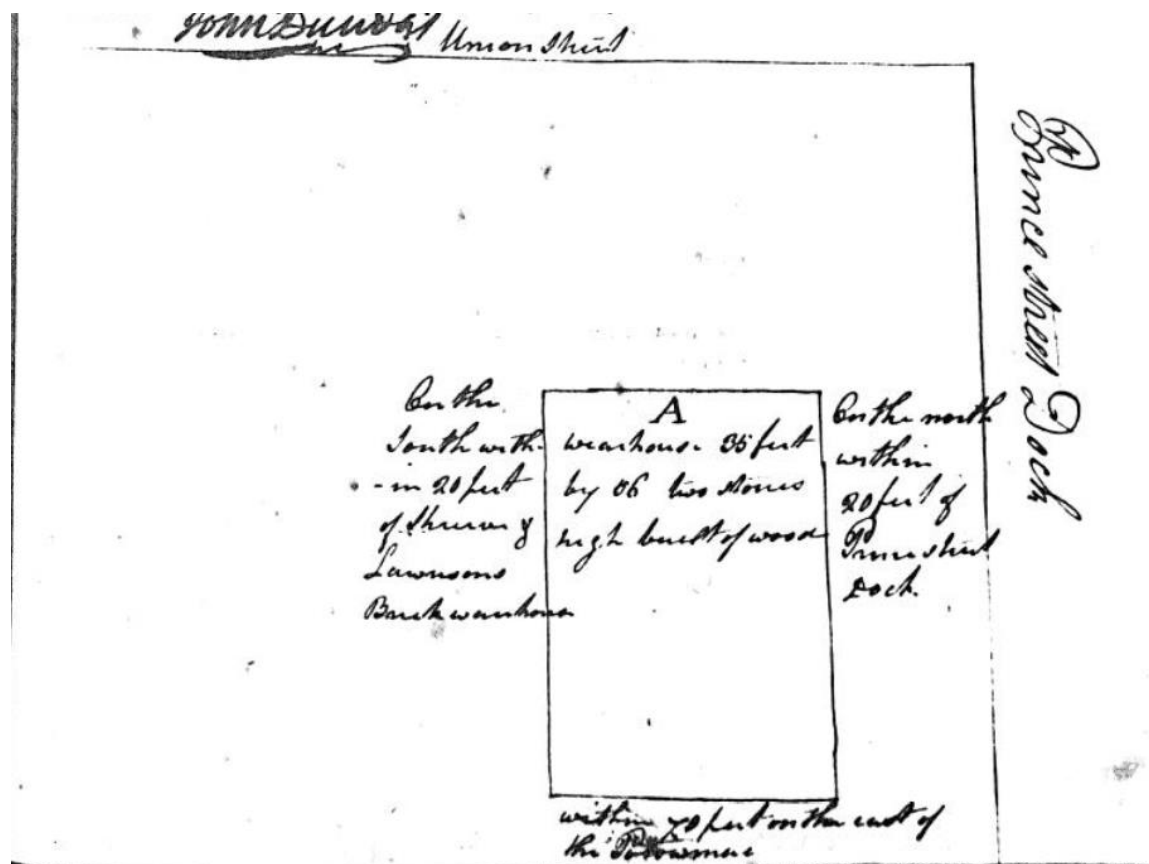 John Dundas Union Street
Prince street Dock
On the
South with-
-in 20 feet
of Shreve &
Lawrasons
Brick warehouse
A
wearhouse 35 feet
by 56 two stories
high built of wood
On the north
within
20 feet of
Prince street
Dock.
within 70 feet on the east of
the Potowmac